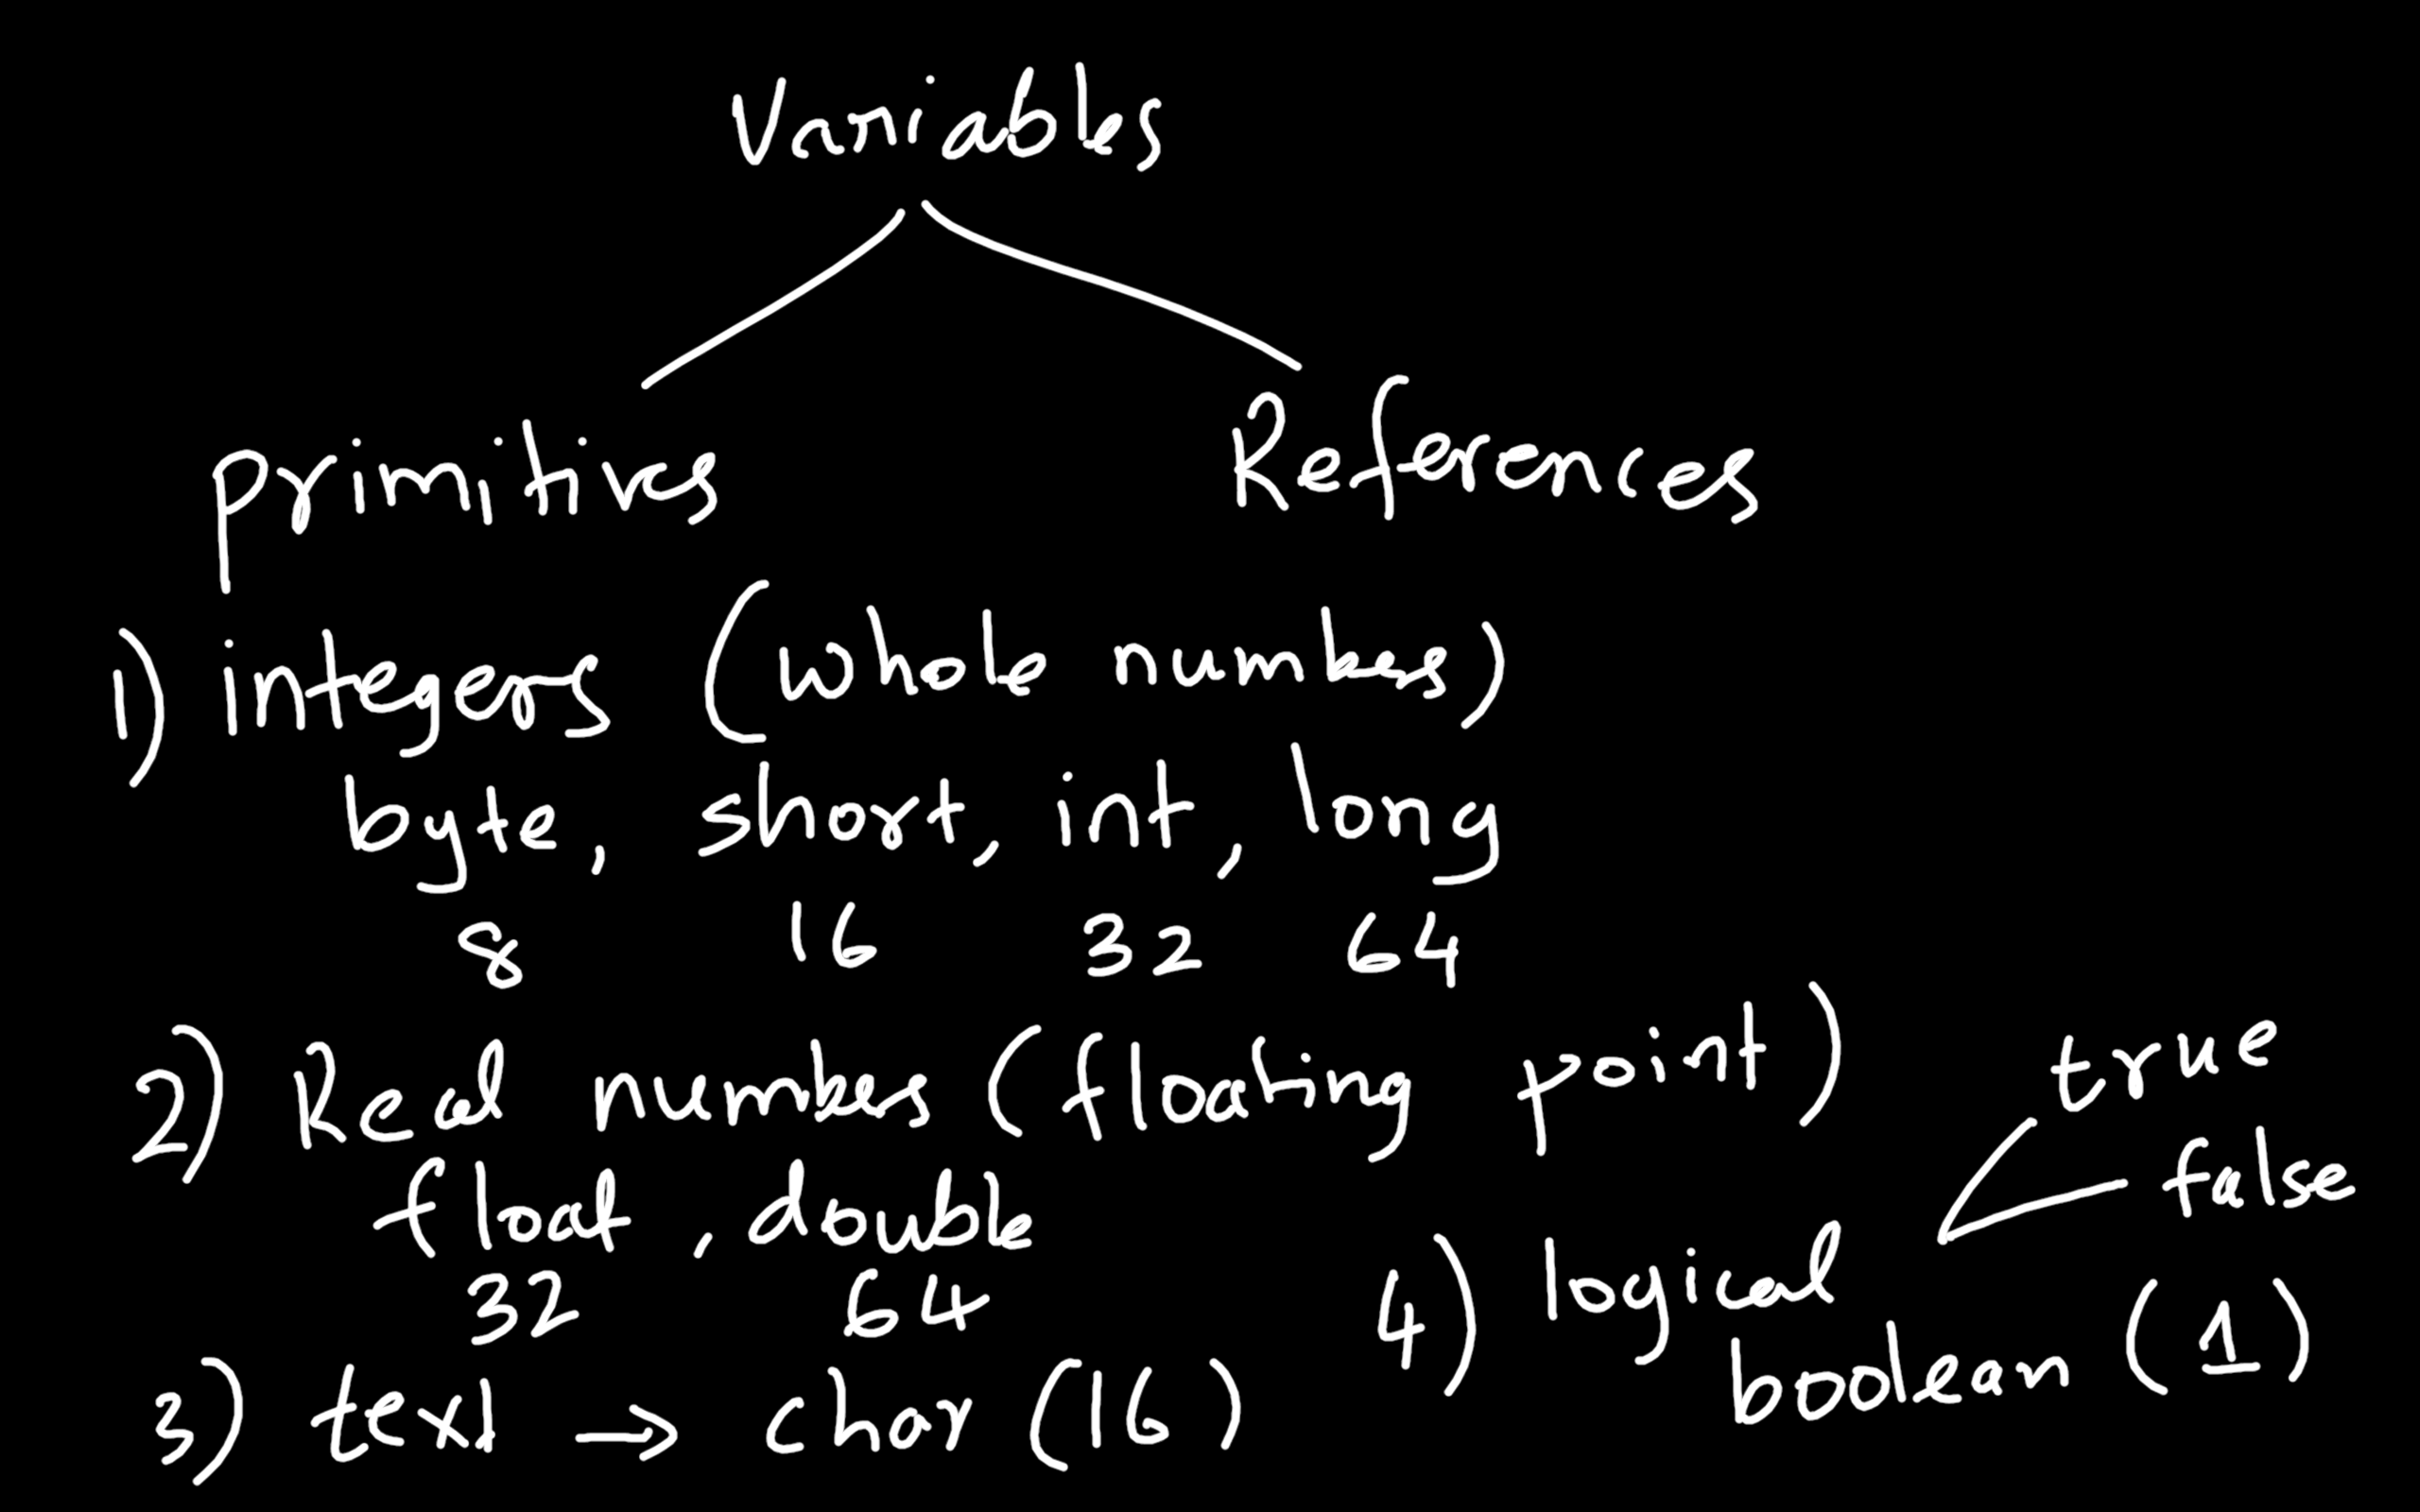 Variables
primitives References
1) integers (whole numbers)
byte, short, int, long
8 16 32 64
2) Real numbers (floating point)
float, double
32 64
3) text → char (16)
true
false
4) logical
boolean (1)